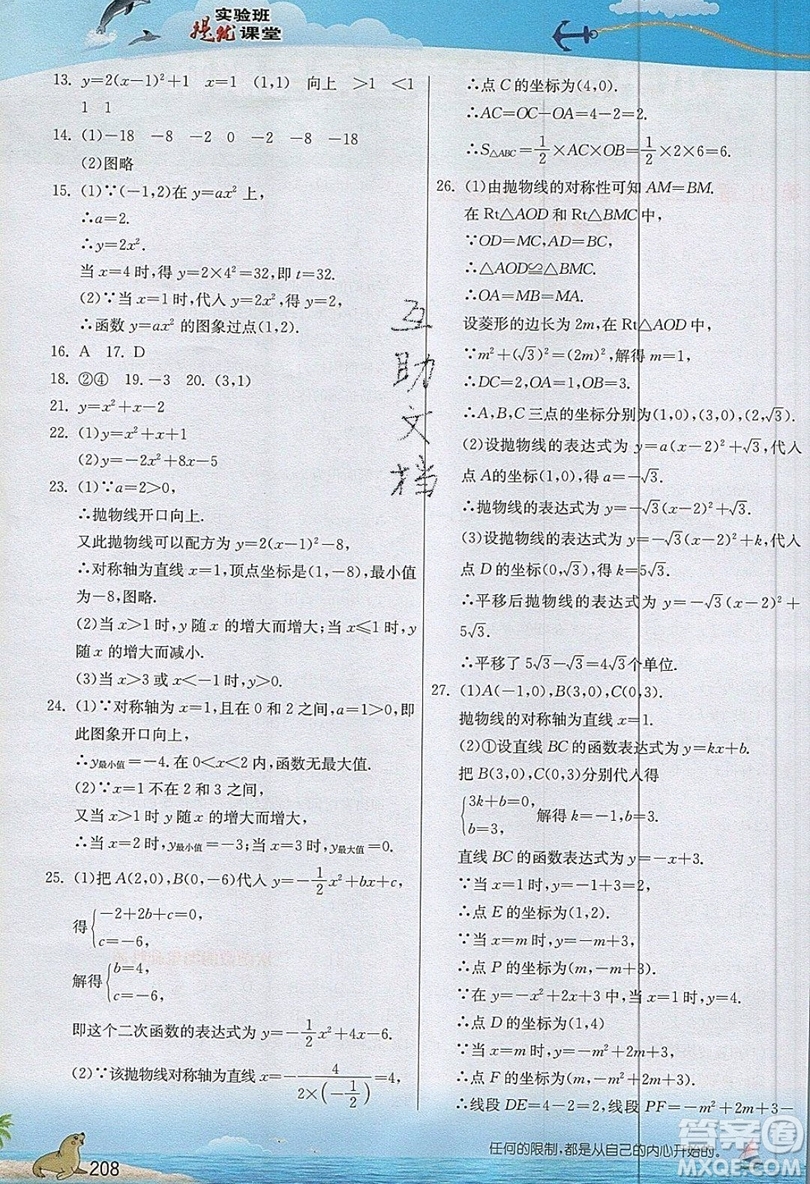 实验班
提优课堂
13. y=2(x-1)²+1 x=1 (1,1) 向上 >1 <1
1 1
14. (1)-18 -8 -2 0 -2 -8 -18
(2)图略
15. (1)∵(-1,2)在 y=ax² 上,
∴a=2.
∴y=2x².
当 x=4 时,得 y=2×4²=32,即 t=32.
(2)∵当 x=1 时,代入 y=2x²,得 y=2,
∴函数 y=ax² 的图象过点(1,2).
16. A 17. D
18. ②④ 19. -3 20. (3,1)
21. y=x²+x-2
22. (1)y=x²+x+1
(2)y=-2x²+8x-5
23. (1)∵a=2>0,
∴抛物线开口向上.
又此抛物线可以配方为 y=2(x-1)²-8,
∴对称轴为直线 x=1,顶点坐标是(1,-8),最小值
为-8,图略.
(2)当 x>1 时,y 随 x 的增大而增大;当 x≤1 时,y
随 x 的增大而减小.
(3)当 x>3 或 x<-1 时,y>0.
24. (1)∵对称轴为 x=1,且在 0 和 2 之间,a=1>0,即
此图象开口向上,
∴y最小值=-4. 在 0<x<2 内,函数无最大值.
(2)∵x=1 不在 2 和 3 之间,
又当 x>1 时 y 随 x 的增大而增大,
∴当 x=2 时,y最小值=-3;当 x=3 时,y最大值=0.
25. (1)把 A(2,0),B(0,-6)代入 y=-1/2x²+bx+c,
得{-2+2b+c=0,
c=-6,
解得{b=4,
c=-6,
即这个二次函数的表达式为 y=-1/2x²+4x-6.
(2)∵该抛物线对称轴为直线 x=-4/(2×(-1/2))=4,
∴点 C 的坐标为(4,0).
∴AC=OC-OA=4-2=2.
∴S△ABC=1/2×AC×OB=1/2×2×6=6.
26. (1)由抛物线的对称性可知 AM=BM.
在 Rt△AOD 和 Rt△BMC 中,
∵OD=MC,AD=BC,
∴△AOD≌△BMC.
∴OA=MB=MA.
设菱形的边长为 2m,在 Rt△AOD 中,
∵m²+(√3)²=(2m)²,解得 m=1.
∴DC=2,OA=1,OB=3.
∴A,B,C 三点的坐标分别为(1,0),(3,0),(2,√3).
(2)设抛物线的表达式为 y=a(x-2)²+√3,代入
点 A的坐标(1,0),得 a=-√3.
∴抛物线的表达式为 y=-√3(x-2)²+√3.
(3)设抛物线的表达式为 y=-√3(x-2)²+k,代入
点 D 的坐标(0,√3),得 k=5√3.
∴平移后抛物线的表达式为 y=-√3(x-2)²+
5√3.
∴平移了 5√3-√3=4√3个单位.
27. (1)A(-1,0),B(3,0),C(0,3).
抛物线的对称轴为直线 x=1.
(2)①设直线 BC 的函数表达式为 y=kx+b.
把 B(3,0),C(0,3)分别代入得
{3k+b=0,
b=3, 解得 k=-1,b=3.
直线 BC 的函数表达式为 y=-x+3.
∵当 x=1 时,y=-1+3=2,
∴点 E 的坐标为(1,2).
∵当 x=m 时,y=-m+3,
∴点 P 的坐标为(m,-m+3).
∵在 y=-x²+2x+3 中,当 x=1 时,y=4.
∴点 D 的坐标为(1,4)
∵当 x=m 时,y=-m²+2m+3,
∴点 F 的坐标为(m,-m²+2m+3).
∴线段 DE=4-2=2,线段 PF=-m²+2m+3-
互助文档
任何的限制,都是从自己的内心开始的。
208
答案圈
MXQE.COM